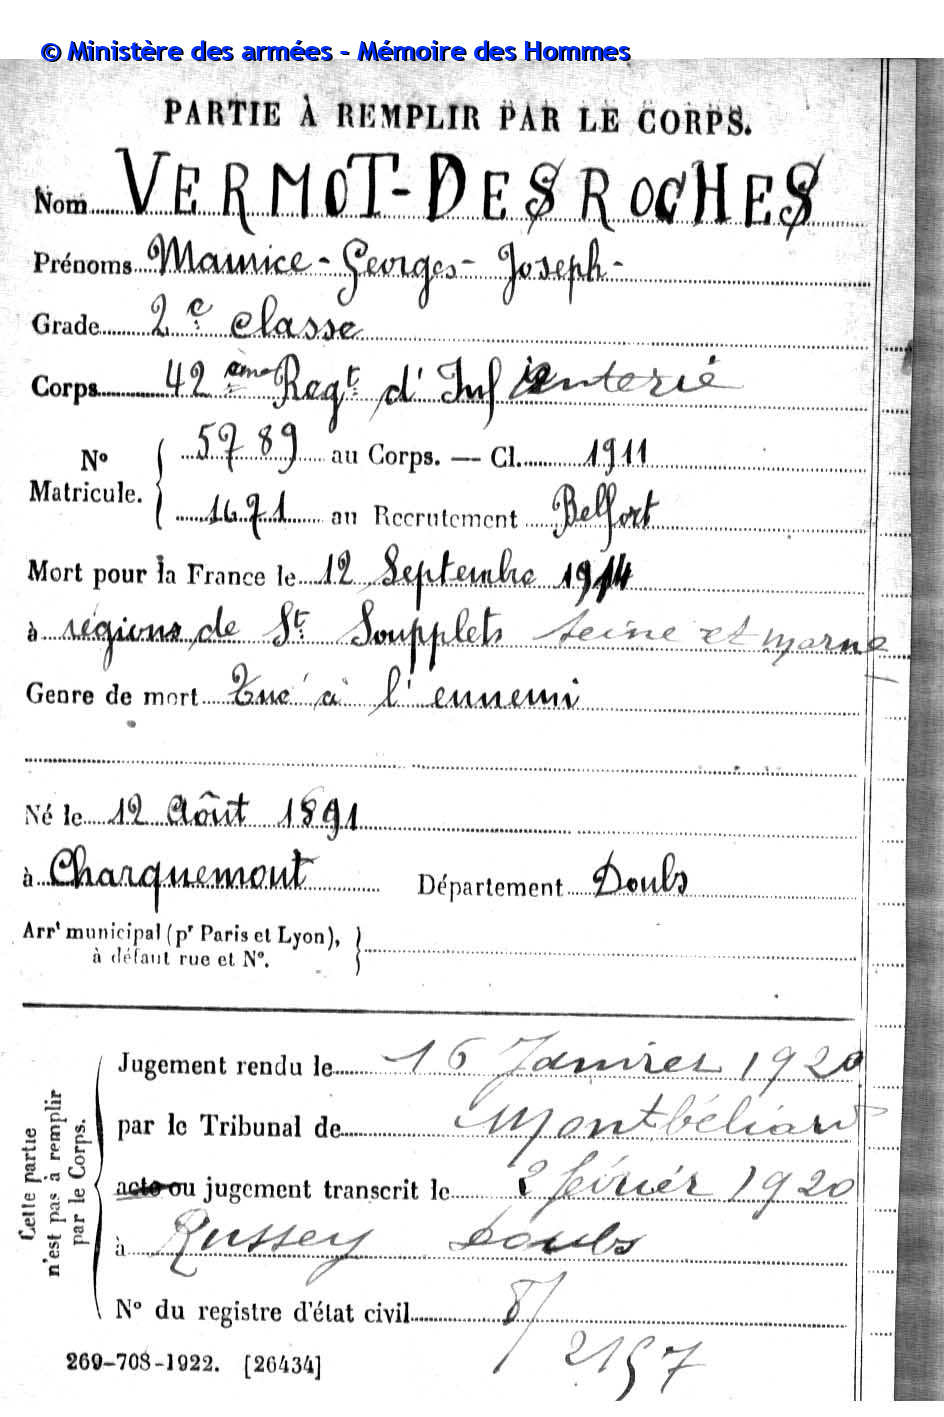 © Ministère des armées - Mémoire des Hommes
PARTIE À REMPLIR PAR LE CORPS.
Nom VERMOT-DESROCHES
Prénoms Maurice - Georges - Joseph -
Grade 2e classe
Corps 42ème Regt d'Infanterie
No Matricule. { 5789 au Corps. — Cl. 1911
1671 au Recrutement Belfort
Mort pour la France le 12 Septembre 1914
à régions de St Soupplets Seine et Marne
Genre de mort Tué à l'ennemi
Né le 12 Août 1891
à Charquemont Département Doubs
Arrt municipal (pr Paris et Lyon),
à défaut rue et No. }
Cette partie
n'est pas à remplir
par le Corps.
Jugement rendu le 16 Janvier 1920
par le Tribunal de Montbéliard
acte ou jugement transcrit le 2 février 1920
à Russey Doubs
No du registre d'état civil 8/
2157
269-708-1922. [26434]